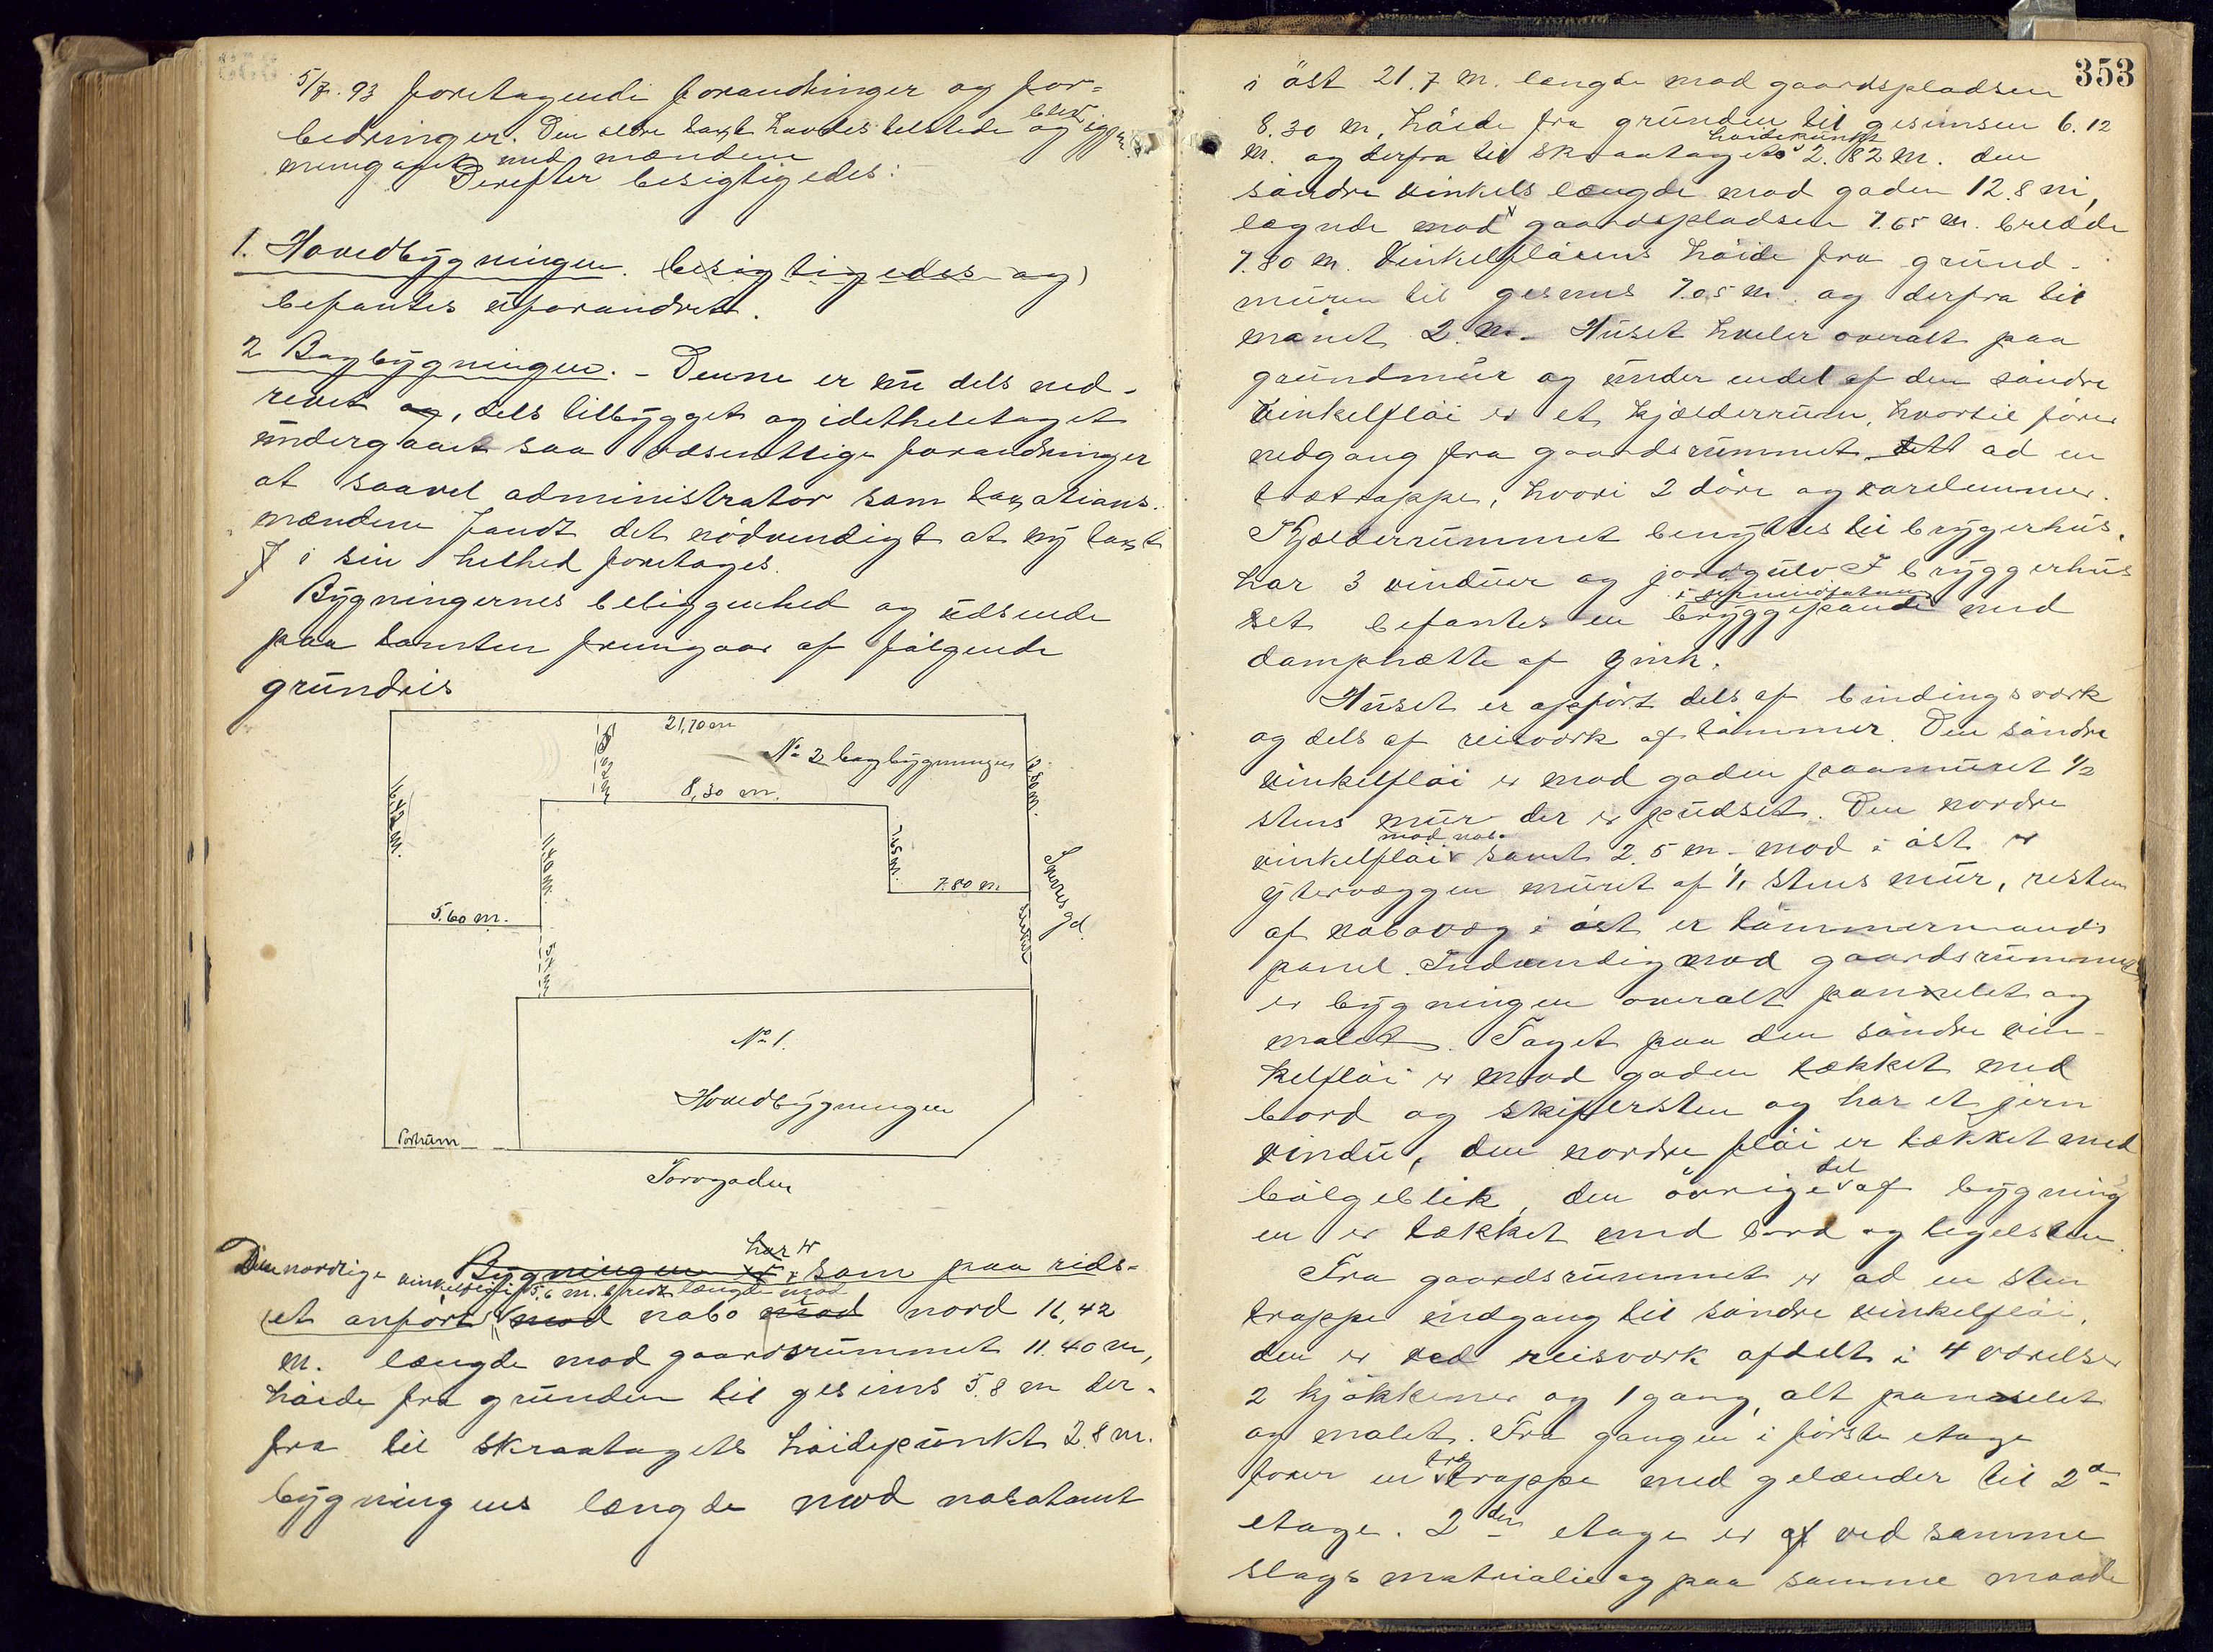 5/7. 93 foretagende forandringer og for-
bedringer. Den eldre taxt havdes tilstede og blev
mendene
Derefter besigtigedes:
1. Hovedbygningen. besigtigedes og
befantes uforandret.
2 Bagbygningen. - Denne er nu dels ned-
revet og, dels tilbygget og idetheletaget
undergaaet saa væsentlige forandringer
at saavel administrator som taxations-
mændene fandt det nødvendigt at ny taxt
i sin helhed foretages.
Bygningernes beliggenhed og udseende
paa tomten fremgaar af følgende
grundris
21,70 m
No 2 bagbygningen
8,30 m.
12.80 m.
16,42 m.
11,40 m.
7.65 m.
7.80 m.
5.60 m.
Smerres gd.
No 1.
Hovedbygningen
Portrum
Torvgaden
Den nordlige vinkelfløi Bygningen har er som paa rids-
5.6 m. bred længde mod
et anført mod nabo mod nord 16,42
m. længde mod gaardsrummet 11.40 m,
høide fra grunden til gesims 5.8 m der-
fra til skraatagets høidepunkt 2.8 m.
bygningens længde mod nabotomt
353
i øst 21.7 m. længde mod gaardspladsen
8.30 m, høide fra grunden til gesimsen 6.12
m. og derfra til skraatagets høidepunkt 2.82 m. den
søndre vinkels længde mod gaden 12.8 m,
længde mod gaardspladsen 7.65 m. bredde
7.80 m. Vinkelfløiens høide fra grund-
muren til gesims 7.05 m. og derfra til
mønet 2. m. Huset hviler overalt paa
grundmur og under endel af den søndre
vinkelfløi er et kjælderrum, hvortil fører
nedgang fra gaardsrummet ad en
trætrappe, hvori 2 døre og karelemmer.
Kjælderrummet benyttes til bryggerhus,
har 3 vinduer og jordgulv I bryggerhus
et befantes en bryggepande med
damphætte af zink.
Huset er opført dels af bindingsverk
og dels af reisverk af tømmer. Den søndre
vinkelfløi er mod gaden paamuret 1/2
stens mur der er pudset. Den nordre
vinkelfløi mod nabo samt 2.5 m. mod i øst er
ytervæggen muret af 1/1 stens mur, resten
af nabovæg i øst er tømmermands
panel. Indvendig mod gaardsrummet
er bygningen overalt panelet og
malet. Taget paa den søndre vin-
kelfløi er mod gaden tækket med
bord og skifersten og har et jern
vindu, den nordre fløi er tækket med
bølgeblik, den øvrige del af bygning
en er tækket med bord og teglsten.
Fra gaardsrummet er ad en sten
trappe indgang til søndre vinkelfløi,
den er ved reisverk afdelt i 4 værelser
2 kjøkkener og 1 gang, alt panelet
og malet. Fra gangen i første etage
fører en træ trappe med gelænder til 2den
etage. 2den etage er af ved samme
slags materialie og paa samme maade